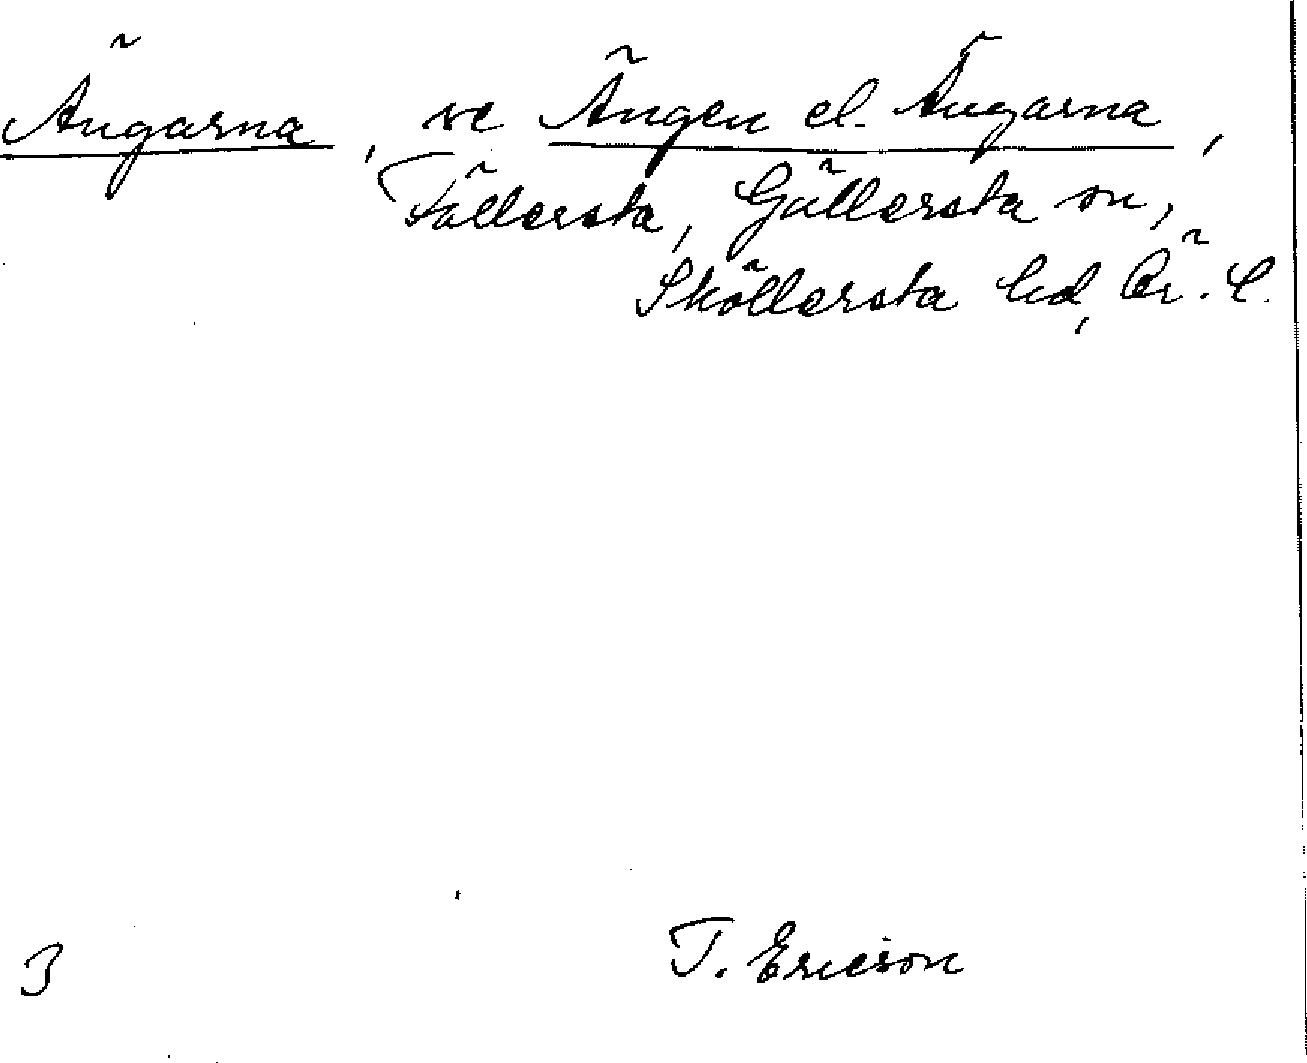 Ängarna, se Ängen el. Ängarna,
Tällersta, Gällersta sn,
Sköllersta hd, Ör. l.
3
T. Ericson